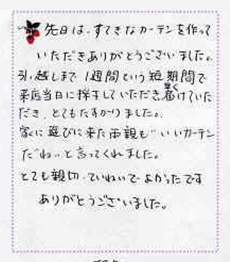 先日は、すてきなカーテンを作って
いただきありがとうございました。
引っ越しまで1週間という短期間で
来店当日に採寸していただき、届けていた
だき、とてもたすかりました。
家に遊びに来た両親も"いいカーテン
だね"と言ってくれました。
とても親切、ていねいでよかったです
ありがとうございました。